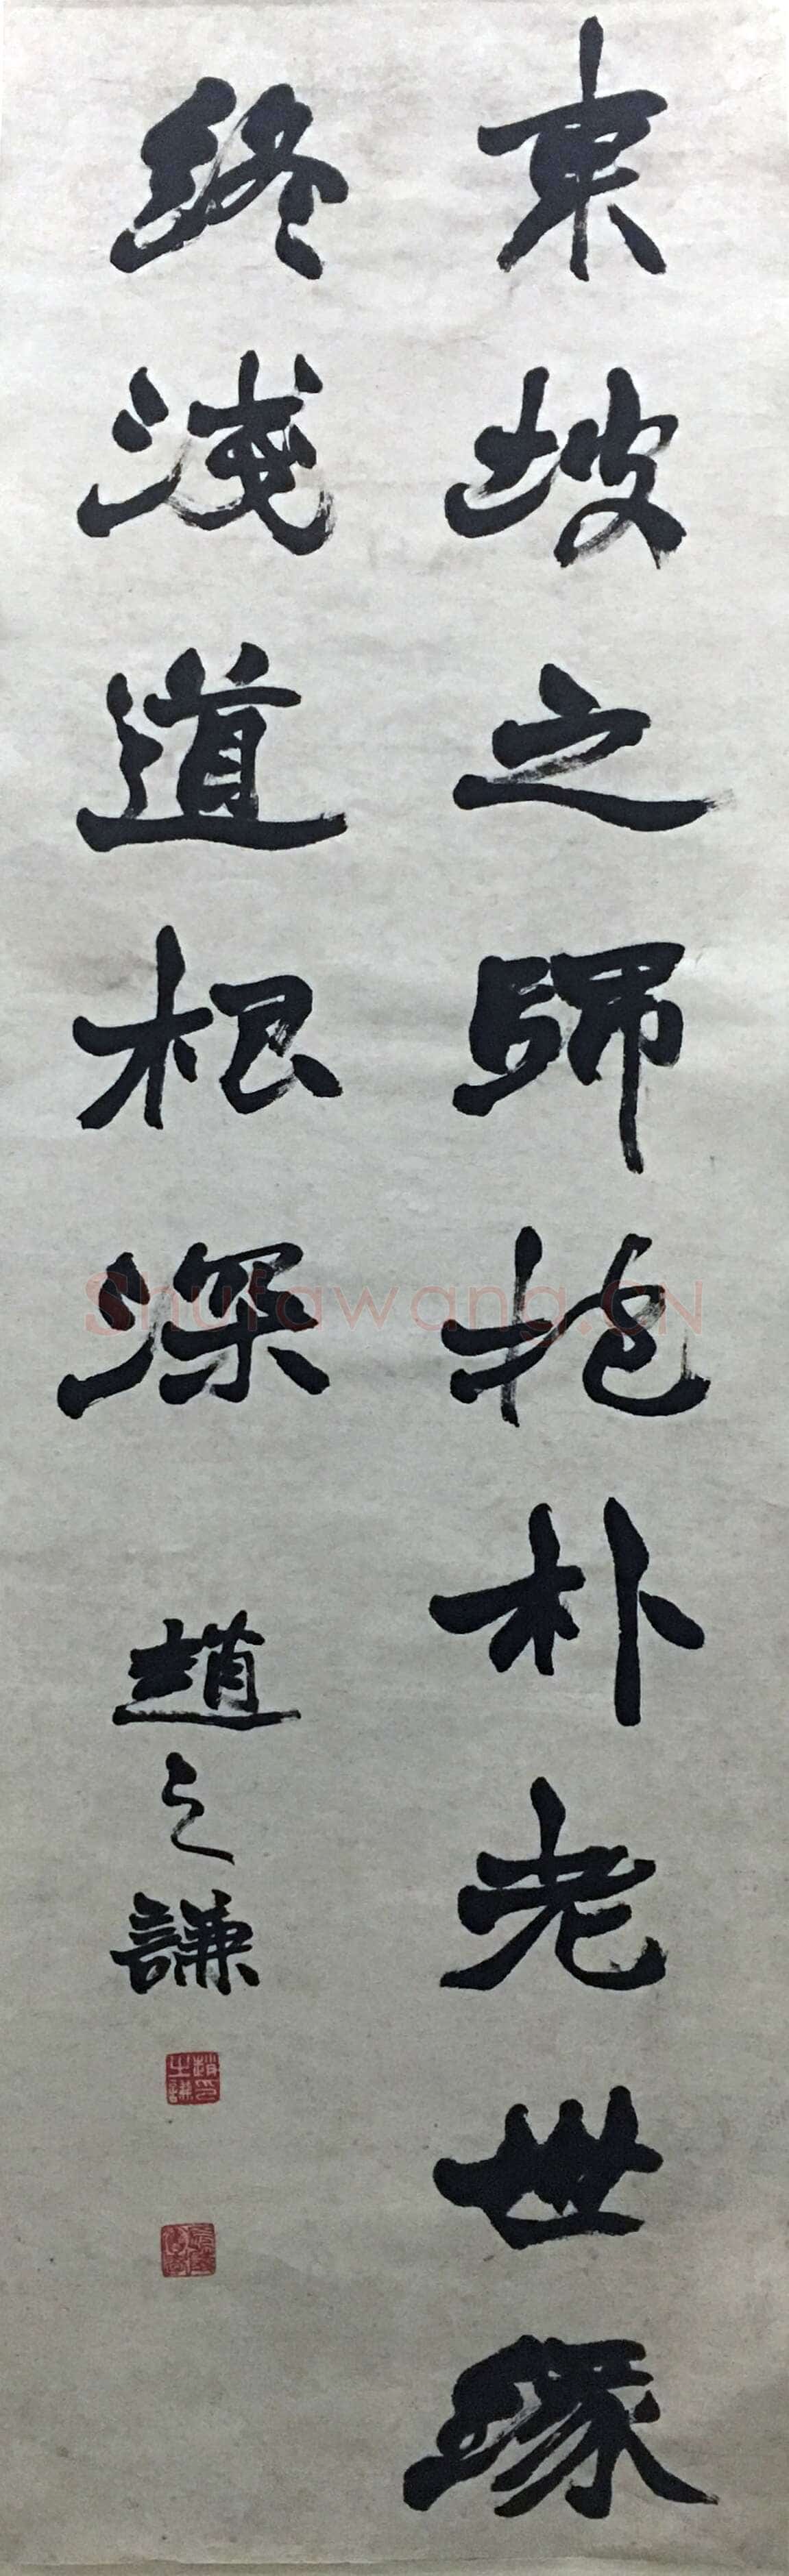 東坡之師抱朴老世緣
終淺道根深
趙之謙
Shufawang.CN
趙之謙印